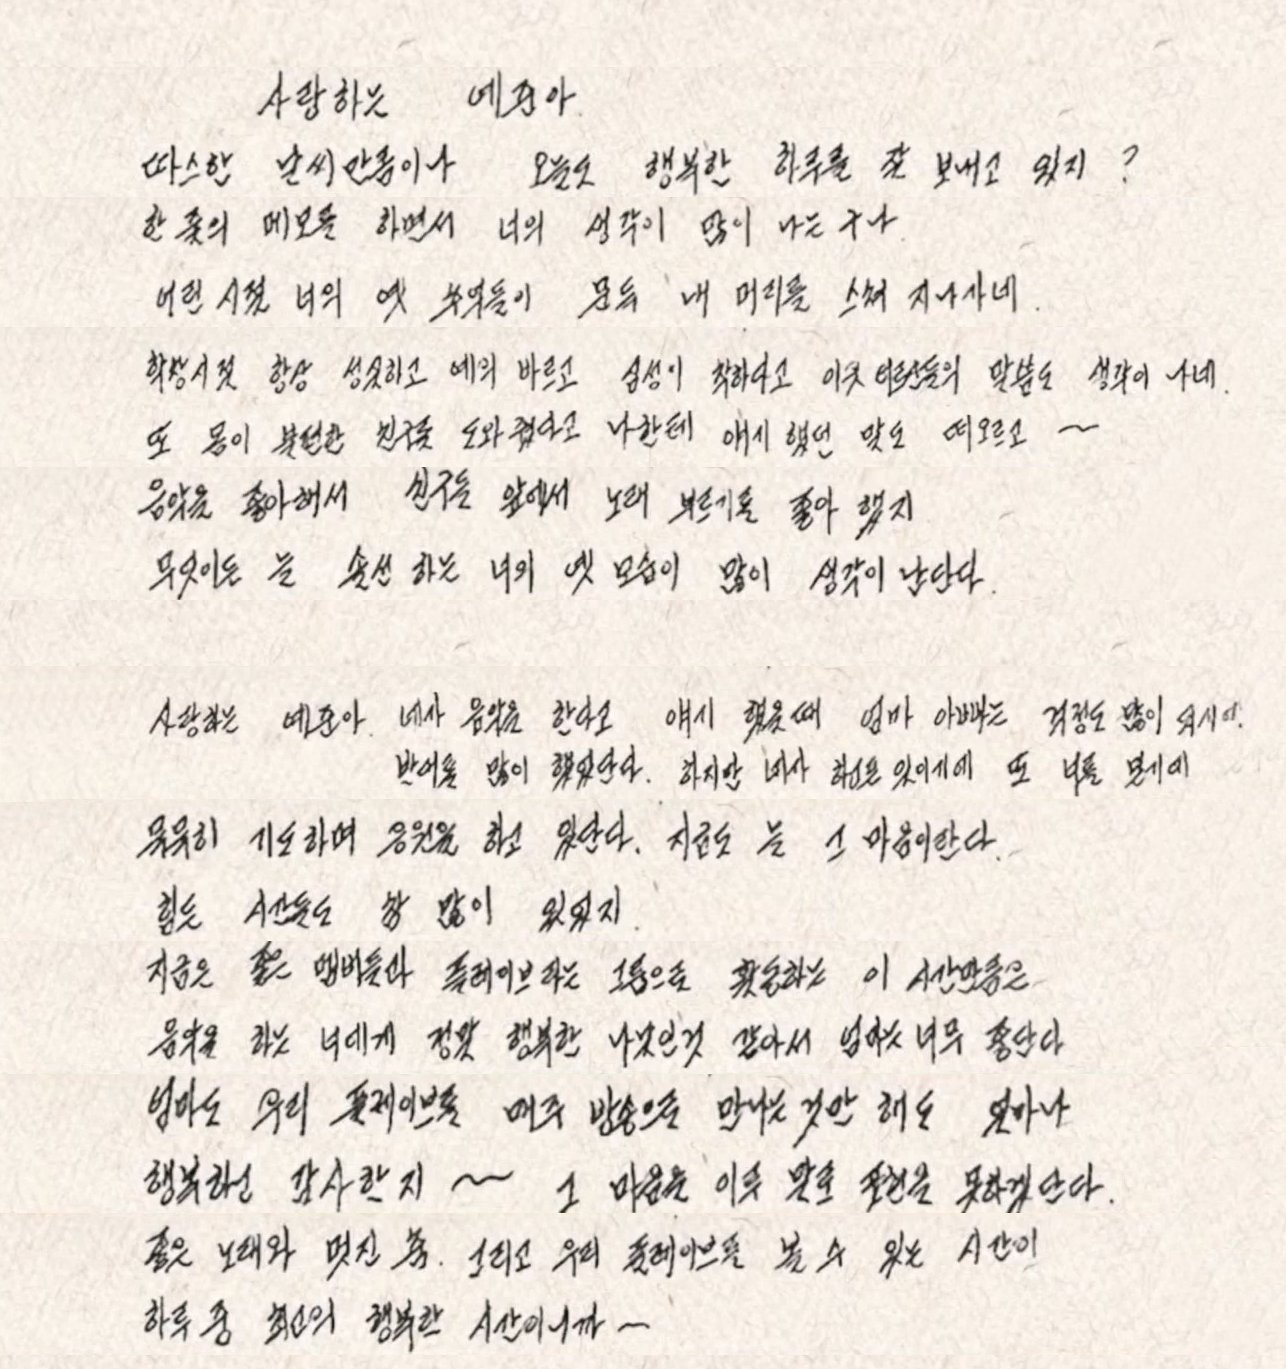 사랑하는 예준아
따스한 날씨만큼이나 오늘도 행복한 하루를 잘 보내고 있지 ?
한 줄의 메모를 하면서 너의 생각이 많이 나는구나.
어린 시절 너의 옛 추억들이 문득 내 머리를 스쳐 지나가네.
학창시절 항상 성실하고 예의 바르고 심성이 착하다고 이웃 어르신들의 말씀도 생각이 나네.
또 몸이 불편한 친구를 도와줬다고 나한테 얘기 했던 말도 떠오르고 ~
음악을 좋아해서 친구들 앞에서 노래 부르기를 좋아 했지
무엇이든 늘 솔선 하는 너의 옛 모습이 많이 생각이 난단다.
사랑하는 예준아. 네가 음악을 한다고 얘기 했을때 엄마 아빠는 걱정도 많이 되시어.
반대를 많이 했었단다. 하지만 네가 하고픈 일이기에 또 너를 믿기에
묵묵히 기도하며 응원을 하고 있단다. 지금도 늘 그 마음이란다.
힘든 시간들도 참 많이 있었지.
지금은 좋은 멤버들과 플레이브라는 그룹으로 활동하는 이 시간만큼은
음악을 하는 너에게 정말 행복한 나날인것 같아서 엄마는 너무 좋단다
엄마도 우리 플레이브를 매주 방송으로 만나는 것만 해도 얼마나
행복하고 감사한지 ~~ 그 마음을 이루 말로 표현을 못하겠단다.
좋은 노래와 멋진 춤. 그리고 우리 플레이브를 볼 수 있는 시간이
하루 중 최고의 행복한 시간이니까 ~